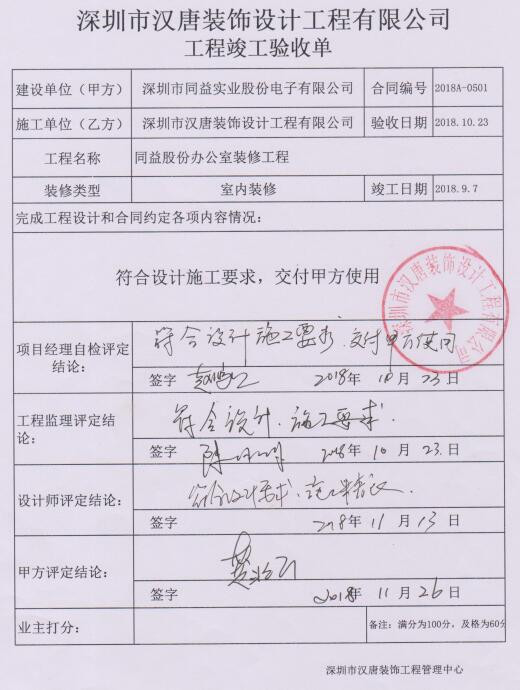 深圳市汉唐装饰设计工程有限公司
工程竣工验收单
建设单位（甲方） 深圳市同益实业股份电子有限公司 合同编号 2018A-0501
施工单位（乙方） 深圳市汉唐装饰设计工程有限公司 验收日期 2018.10.23
工程名称 同益股份办公室装修工程
装修类型 室内装修 竣工日期 2018.9.7
完成工程设计和合同约定各项内容情况：
符合设计施工要求，交付甲方使用
深圳市汉唐装饰设计工程有限公司
项目经理自检评定结论： 符合设计施工要求.交付甲方使用
签字 2018年10月23日
工程监理评定结论： 符合设计.施工要求.
签字 2018年10月23.日
设计师评定结论：
签字 2018年11月13日
甲方评定结论：
签字 2018年11月26日
业主打分： 备注：满分为100分，及格为60分
深圳市汉唐装饰工程管理中心